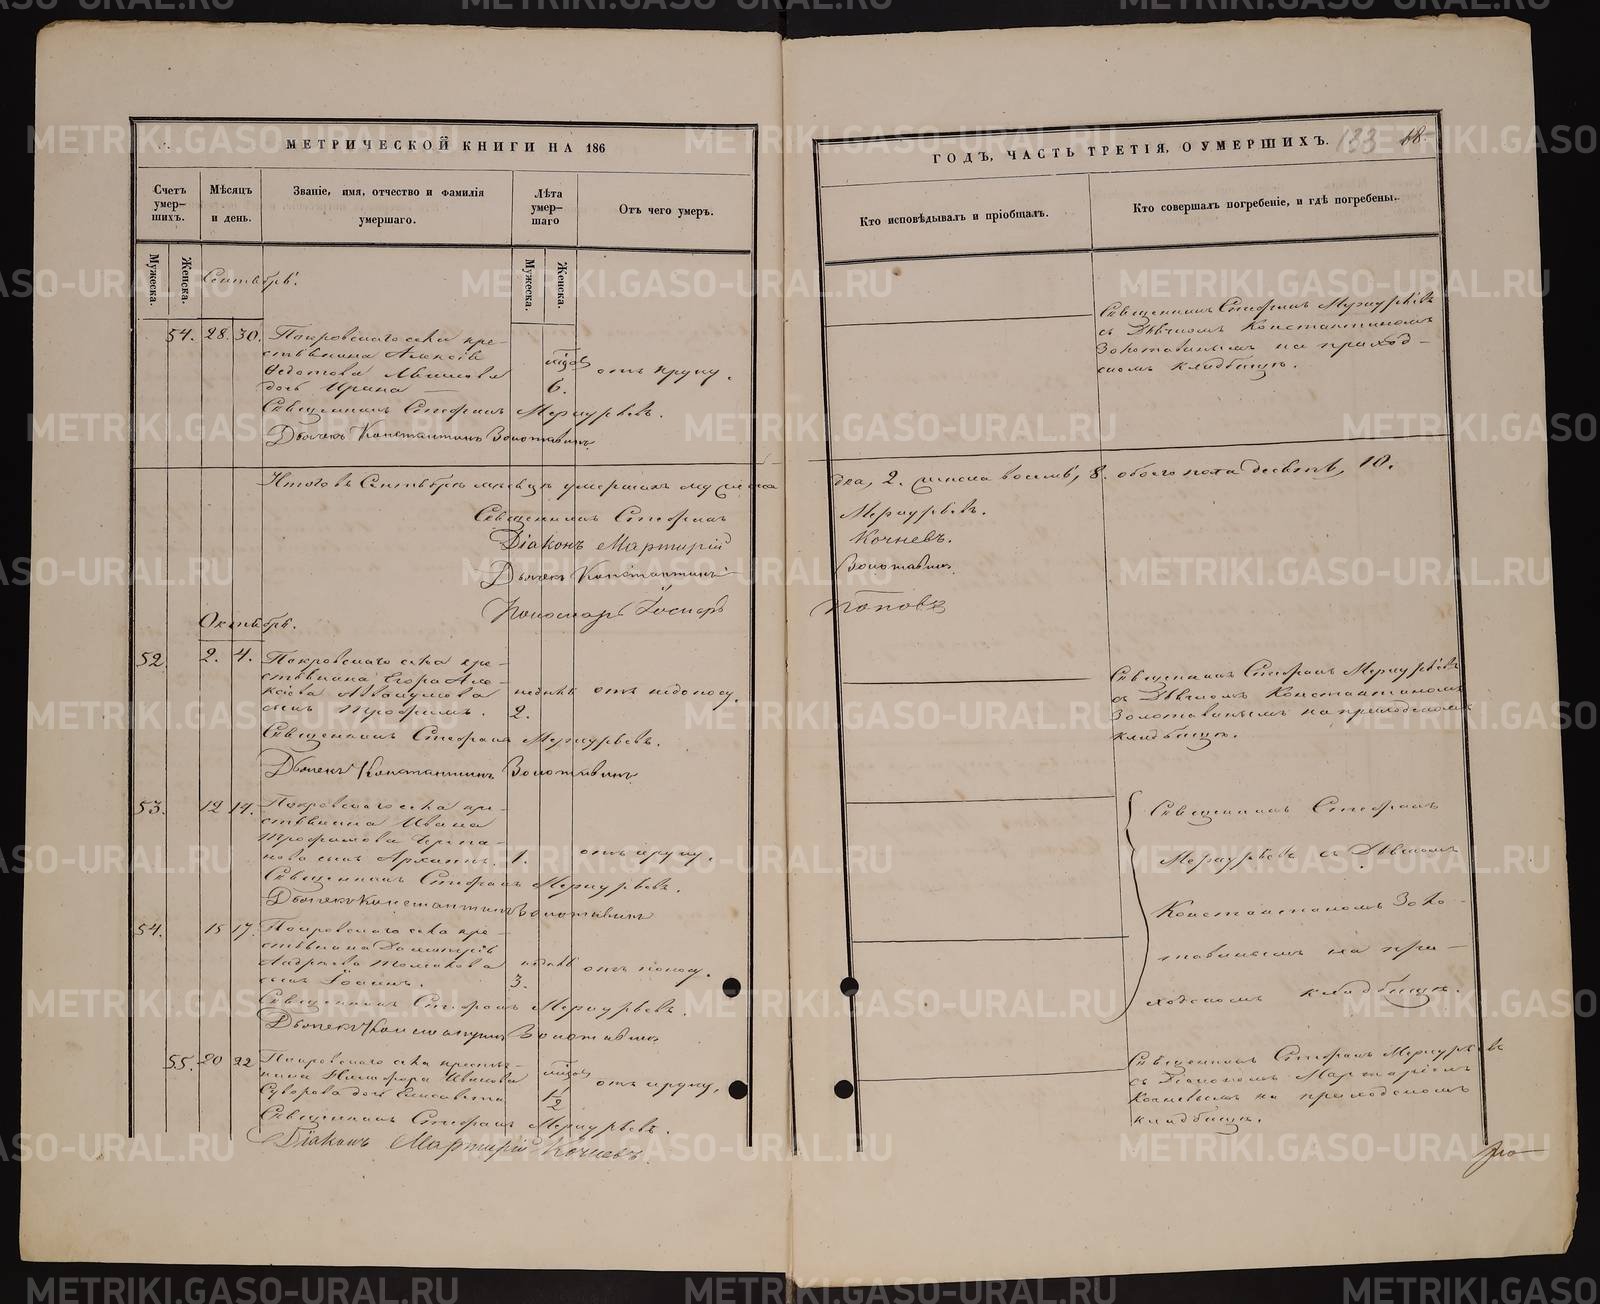 МЕТРИЧЕСКОЙ КНИГИ НА 186
Счетъ умер-шихъ.
Мѣсяцъ и день.
Званіе, имя, отчество и фамилія умершаго.
Лѣта умер-шаго
Отъ чего умеръ.
Мужеска.
Женска.
Мужеска.
Женска.
Сентябрь.
54. 28. 30. Покровскаго села кре-
стьянина Алексія
Ѳедотова
дочь Ирина 6. отъ крупу.
Священникъ Стефанъ Меркурьевъ.
Дьячекъ Константинъ Золотавинъ
Итого въ Сентябрѣ мѣсяцѣ умершихъ мужеска
Священникъ Стефанъ
Діаконъ Мартирій
Дьячекъ Константинъ
Пономарь
Октябрь.
52. 2. 4. Покровскаго села кре-
стьянина Егора Але-
ксіева Аввакумова недѣль отъ недоносу.
сынъ Трофимъ. 2.
Священникъ Стефанъ Меркурьевъ.
Дьячекъ Константинъ Золотавинъ
53. 12 14. Покровскаго села кре-
стьянина Ивана
Трофимова
сынъ Архиппъ. 1. отъ крупу.
Священникъ Стефанъ Меркурьевъ.
Дьячекъ Константинъ Золотавинъ
54. 15 17. Покровскаго села кре-
стьянина Димитрія
Андреева Толмакова недѣль отъ поносу.
сынъ Іоаннъ. 3.
Священникъ Стефанъ Меркурьевъ.
Дьячекъ Константинъ Золотавинъ
55. 20 22 Покровскаго села крестья-
нина Никифора Иванова
Суворова дочь Елисавета 1/2 отъ крупу.
Священникъ Стефанъ Меркурьевъ.
Діаконъ Мартирій Кочневъ
ГОДЪ, ЧАСТЬ ТРЕТІЯ, О УМЕРШИХЪ.
133 18.
Кто исповѣдывалъ и пріобщалъ.
Кто совершалъ погребеніе, и гдѣ погребены.
Священникъ Стефанъ Меркурьевъ
съ Дьячкомъ Константиномъ
Золотавинымъ на приход-
скомъ кладбищѣ.
два, 2. женска восемь, 8. обоего пола десять, 10.
Меркурьевъ.
Кочневъ.
Золотавинъ
Поповъ
Священникъ Стефанъ Меркурьевъ
съ Дьячкомъ Константиномъ
Золотавинымъ на приходскомъ
кладбищѣ.
Священникъ Стефанъ
Меркурьевъ съ Дьячкомъ
Константиномъ Золо-
тавинымъ на при-
ходскомъ кладбищѣ.
Священникъ Стефанъ Меркурьевъ
съ Діакономъ Мартиріемъ
Кочневымъ на приходскомъ
кладбищѣ.
METRIKI.GASO-URAL.RU